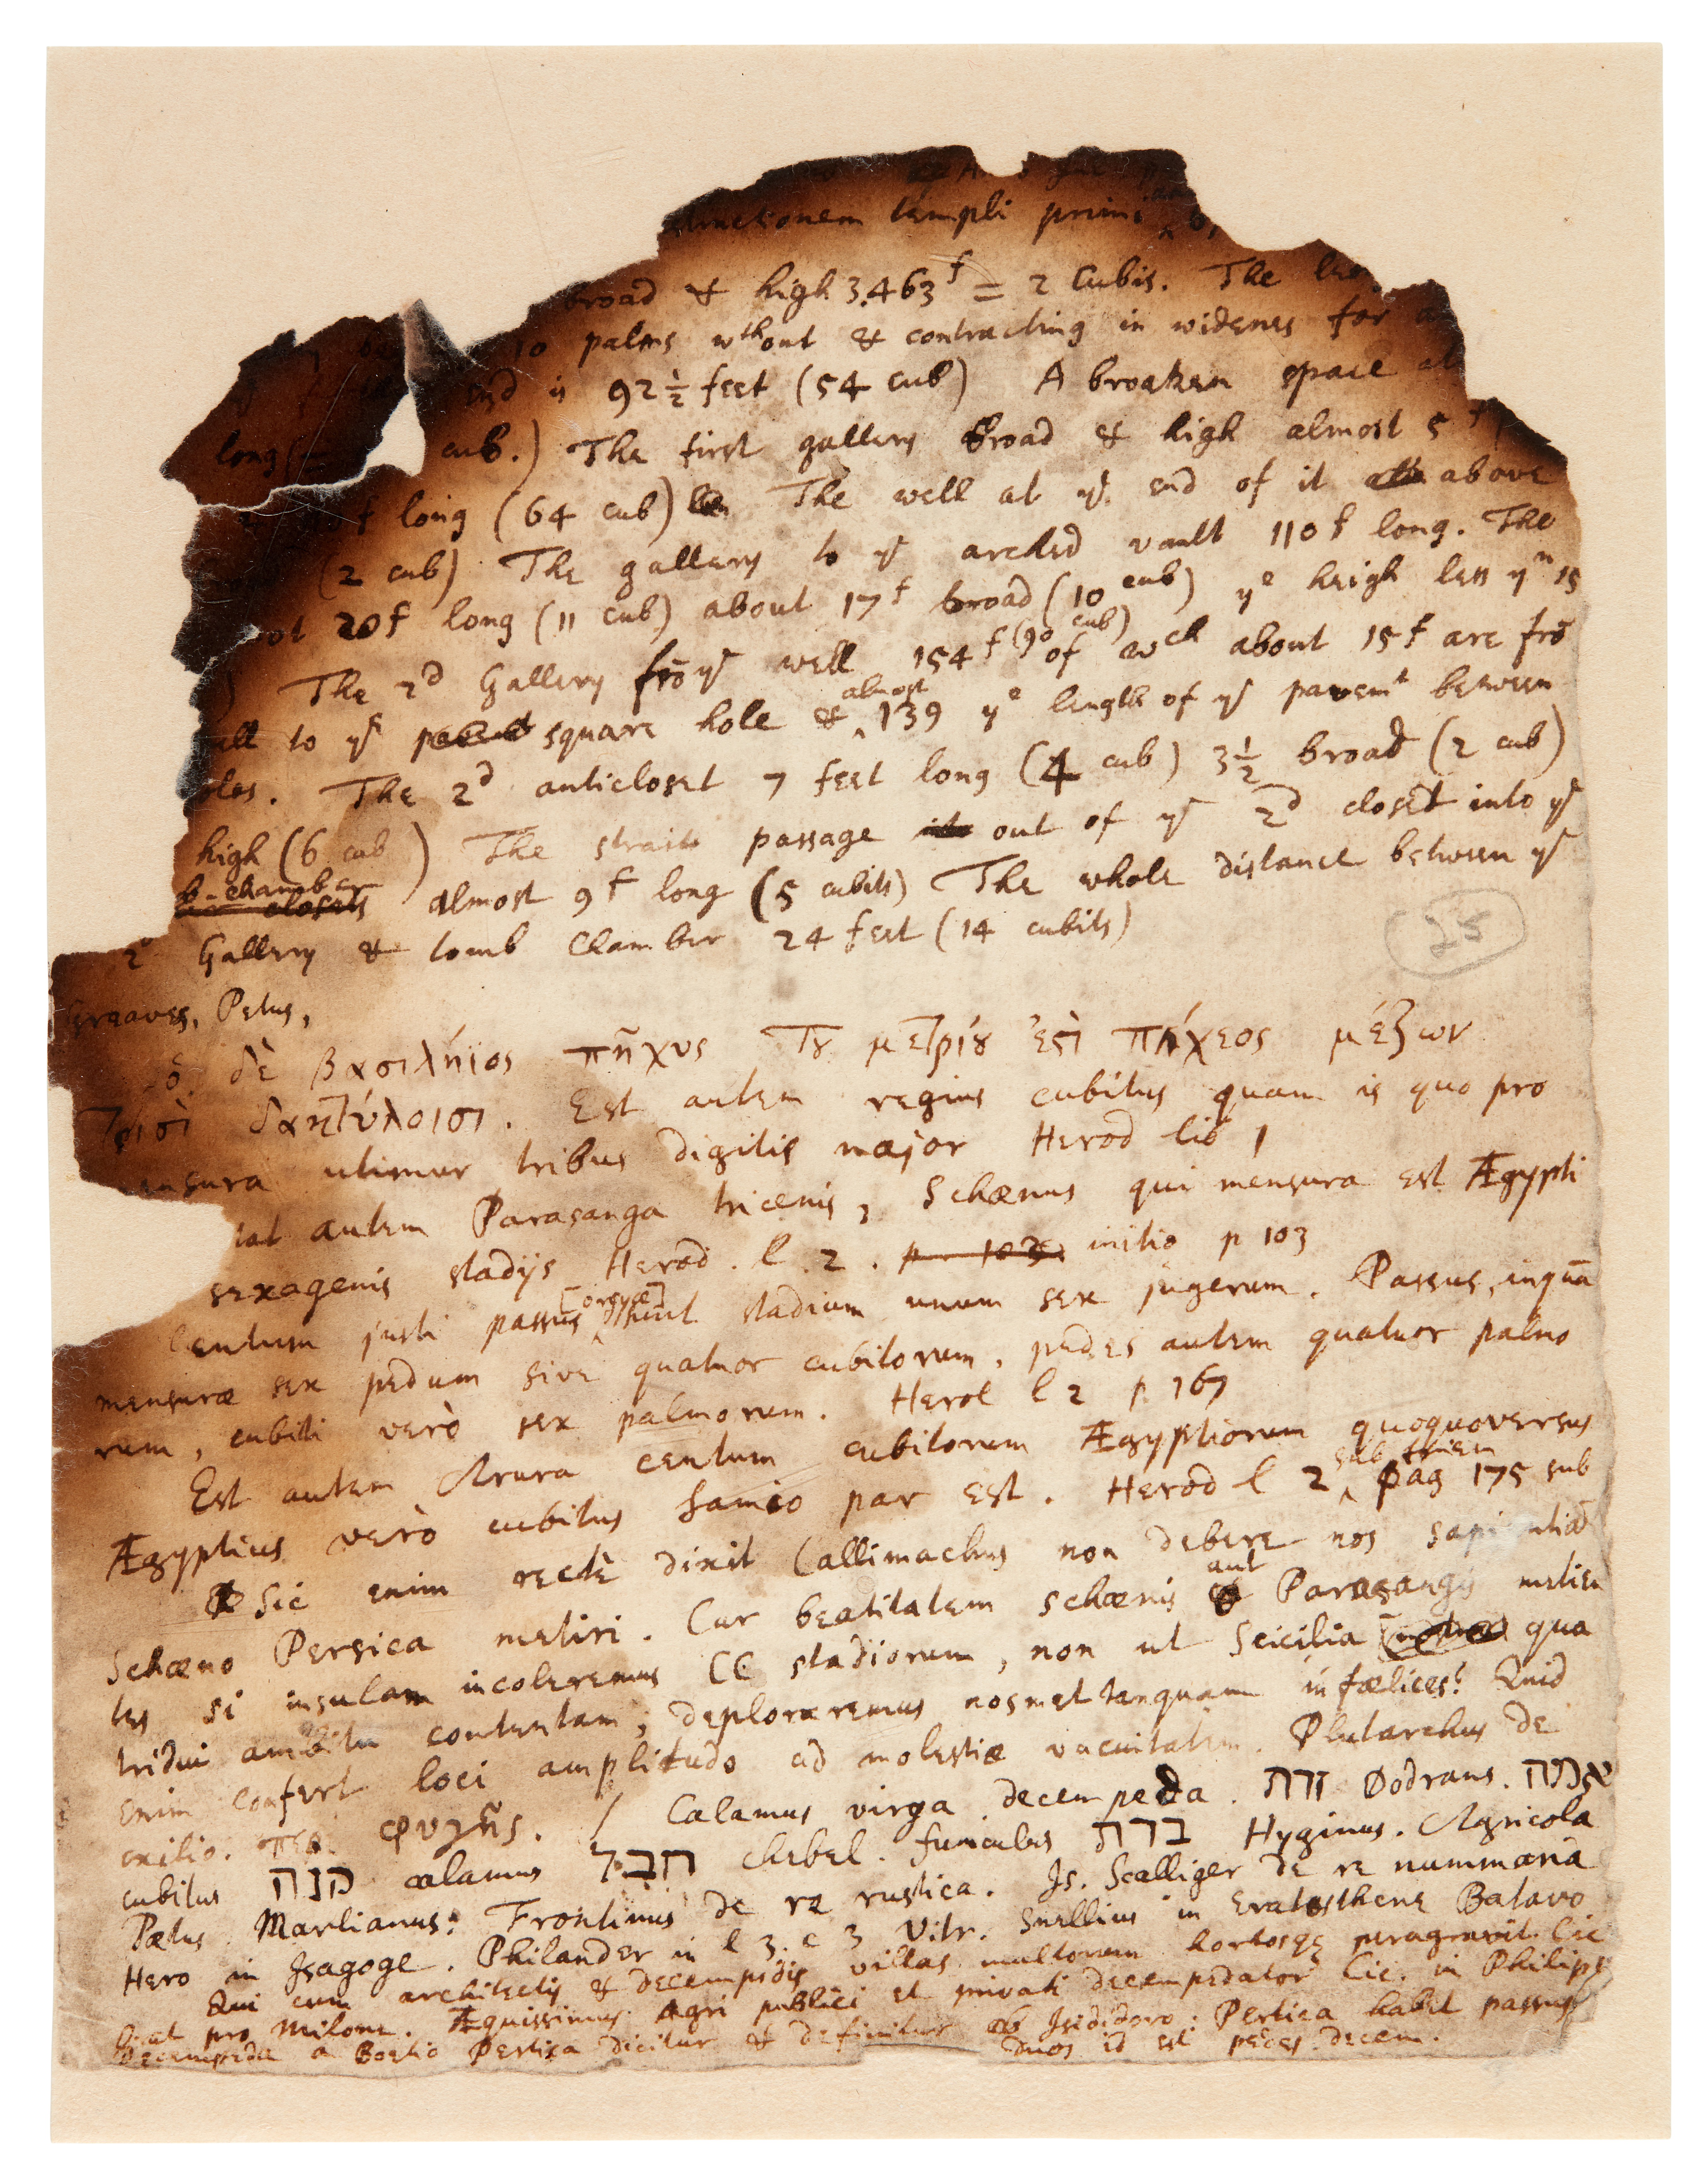 structionem templi primi
broad & high 3.463f = 2 Cubis. The
10 palms wthout & contracting in widenes for
end is 92½ feet (54 cub) A broaken space
long (= cub.) The first gallery broad & high almost 5 f
f long (64 cub) The well at ye end of it above
(2 cub) The gallery to ye arched vault 110 f long. The
20f long (11 cub) about 17f broad (10 cub) ye heigh less yn 15
) The 2d Gallery frō ye well 154f (90 cub) of wch about 15f are frō
to ye square hole & almost 139 ye length of ye pavemt between
oles. The 2d anticloset 7 feet long (4 cub) 3½ broad (2 cub)
high (6 cub) The strait passage out of ye 2d closet into ye
b-chamber almost 9f long (5 cubits) The whole distance between ye
2d Gallery & tomb Chamber 24 feet (14 cubits)
25
Greaves, Petus,
ὁ δὲ βασιλήϊος πῆχυς τȣ μετρίȣ ἐστὶ πήχεος μέζων
τρισὶ δακτύλοισι. Est autem regius cubitus quam is quo pro
mensura utimur tribus digitis major Herod lib 1
autem Parasanga tricenis, Schænus qui mensura est Ægypti
sexagenis stadijs Herod. l. 2. p 103 initio p 103
Centum justi passus [orgyæ] sunt stadium unum sex jugerum. Passus, inquā
mensuræ sex pedum sive quatuor cubitorum, pedes autem quatuor palmo
rum, cubiti verò sex palmorum. Herot l 2 p. 167
Est autem Arura centum cubitorum Ægyptiorum quoquoversus
Ægyptius verò cubitus Samio par est. Herod l 2 sub finem pag 175 sub
Sic enim rectè dixit Callimachus non debere nos sapientiam
Schæno Persica metiri. Cur beatitatem schænis aut Parasangis metien
tes si insulam incoleremus CC stadiorum, non ut Scicilia qua
tridui ambitu contentam; deploraremus nosmet tanquam infælices? Quid
enim confert loci amplitudo ad molestiæ vacuitatem. Plutarchus de
exilio. περ. φυγῆς. / Calamus virga decempeda. זרת Dodrans. אמה
cubitus קנה calamus חבל chebel. funiculus ברת Hyginus. Agricola
Pætus Marlianus: Frontinus de re rustica. Js. Scalliger de re nummaria
Hero in Jsagoge. Philander in l 3. c 3 Vitr. Snellius in Eratosthene Batavo
Qui cum architectis & decempedis villas multorum hortosqȩ peragravit. Cic
Orat pro Milone. Æquissimus Agri publici et privati decempedator Cic. in Philipp
Decempeda a Boetio Pertica dicitur & definitur ab Jsididoro: Pertica habet passus
duos id est pedes decem.